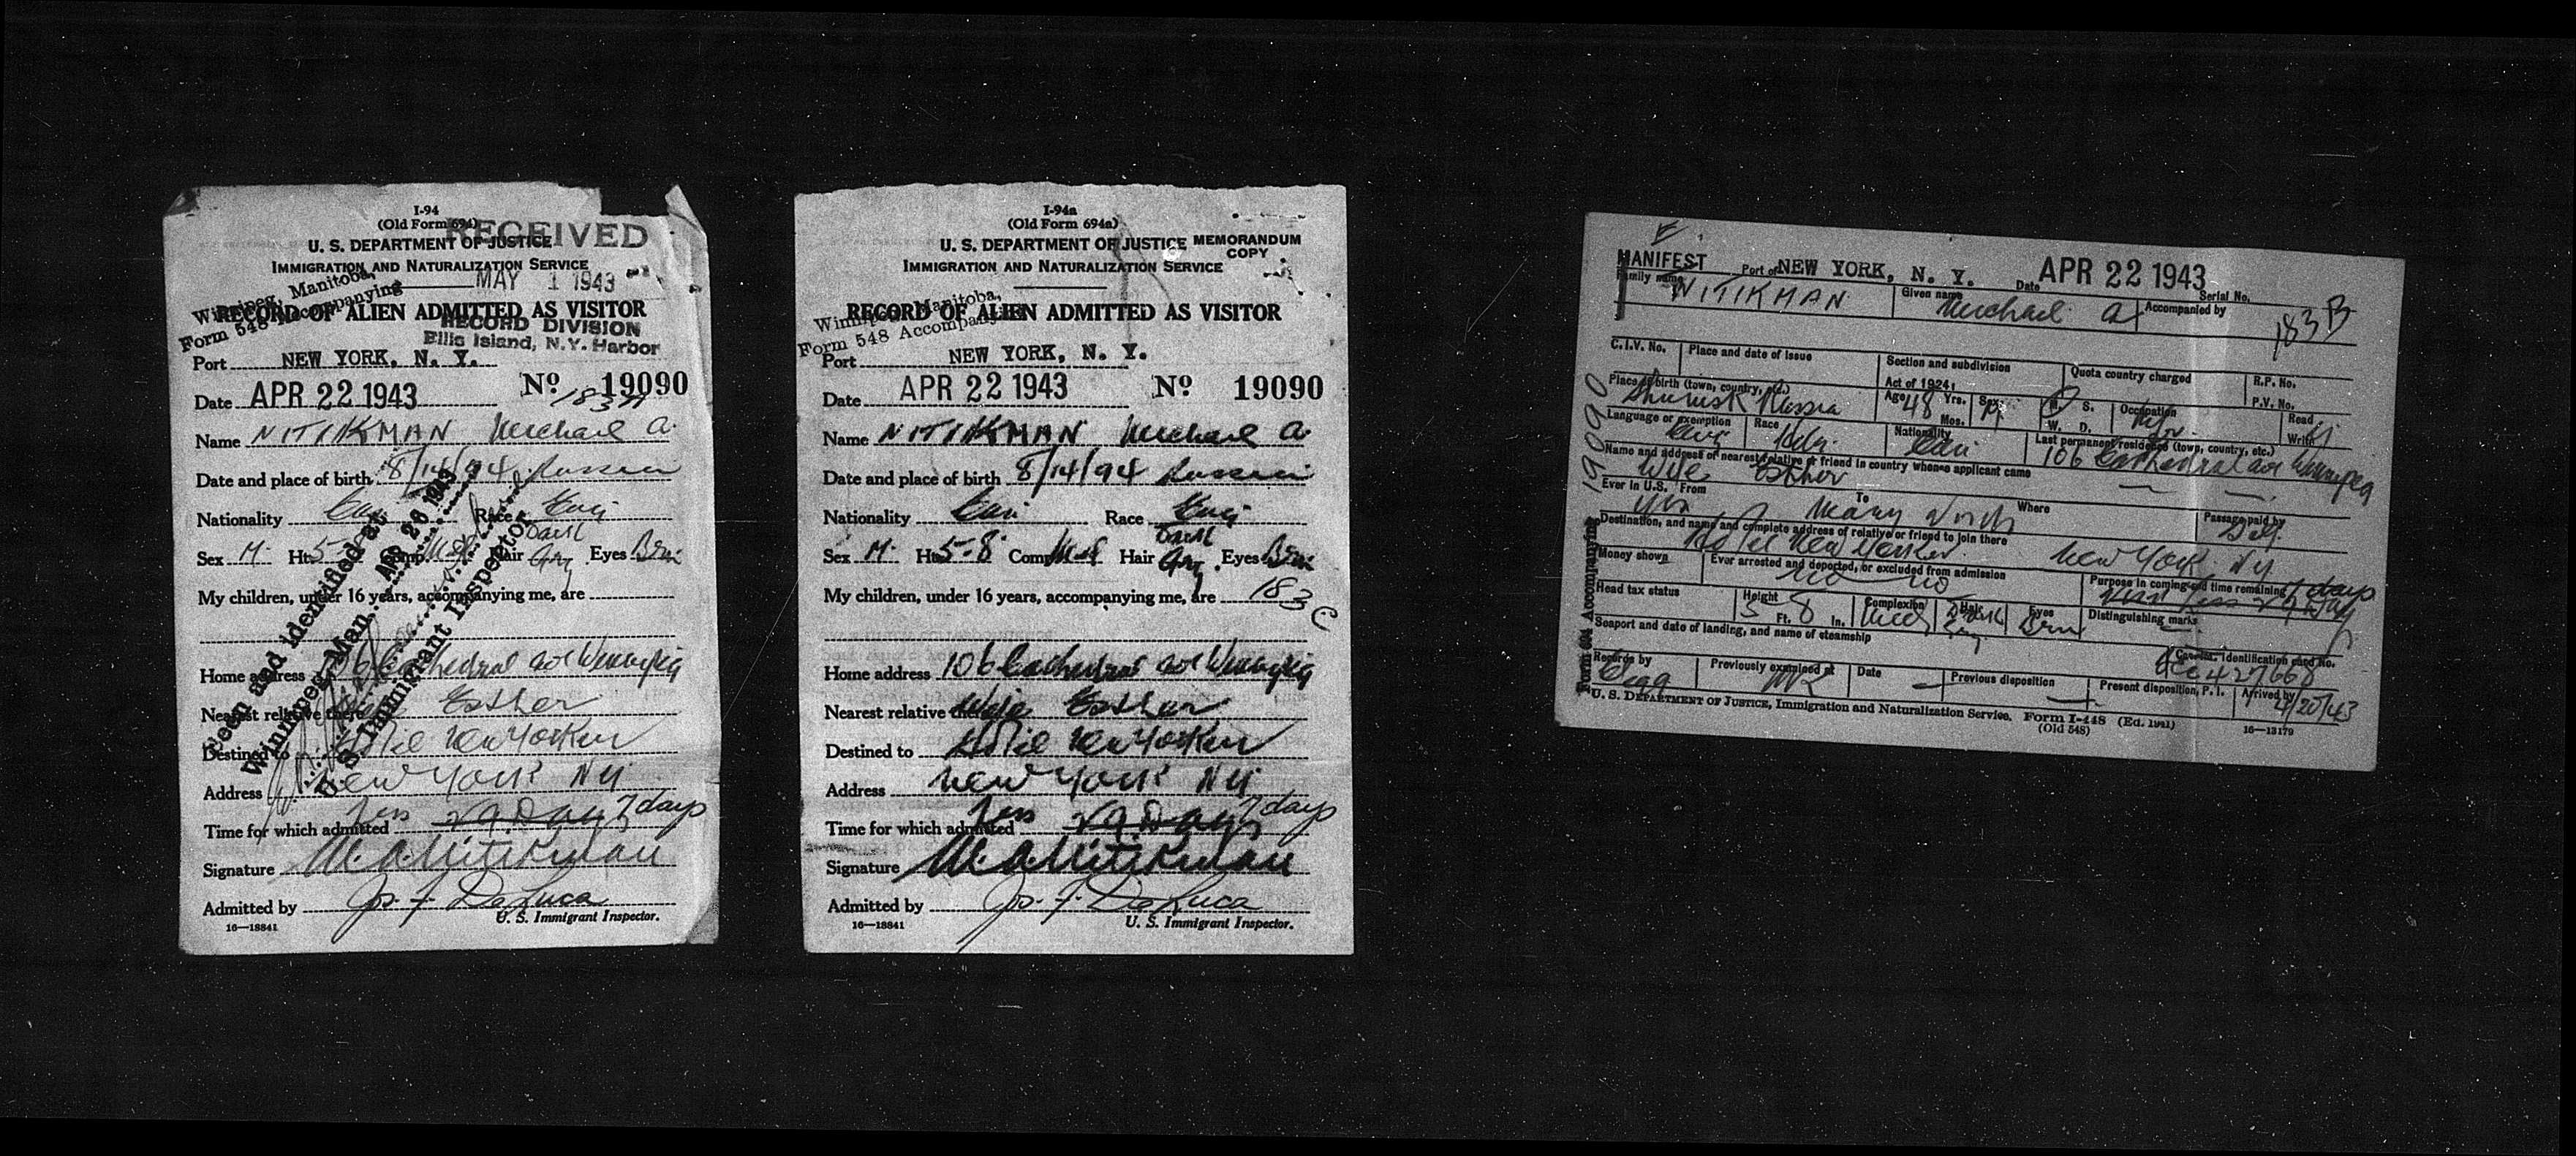 I-94
(Old Form 694)
RECEIVED
U. S. DEPARTMENT OF JUSTICE
IMMIGRATION AND NATURALIZATION SERVICE
MAY 1 1943
Winnipeg, Manitoba,
Form 548 Accompanying
RECORD OF ALIEN ADMITTED AS VISITOR
RECORD DIVISION
Ellis Island, N.Y. Harbor
Port NEW YORK, N. Y.
Date APR 22 1943 No 19090
Name NITIKMAN Michael A.
Date and place of birth 8/14/94 Russia
Nationality Can Race Eng
Sex M. Ht. 5-8 Comp. Med Hair Dark Gry. Eyes Brn
My children, under 16 years, accompanying me, are
Home address 106 Cathedral ave Winnipeg
Nearest relative there Wife Esther
Destined to Hotel New Yorker
Address New York NY
Time for which admitted Less 29 Days 7 days
Signature M. A. Nitikman
Admitted by Jos. F. DeLuca
U. S. Immigrant Inspector.
16—18841
Seen and identified at
Winnipeg, Man. APR 26 1943
U. S. Immigrant Inspector
I-94a
(Old Form 694a)
U. S. DEPARTMENT OF JUSTICE MEMORANDUM COPY
IMMIGRATION AND NATURALIZATION SERVICE
Winnipeg, Manitoba,
Form 548 Accompanying
RECORD OF ALIEN ADMITTED AS VISITOR
Port NEW YORK, N. Y.
Date APR 22 1943 No 19090
Name NITIKMAN Michael A.
Date and place of birth 8/14/94 Russia
Nationality Can Race Eng
Sex M. Ht. 5-8 Comp. Med Hair Dark Gry. Eyes Brn
My children, under 16 years, accompanying me, are 183 C
Home address 106 Cathedral ave Winnipeg
Nearest relative there Wife Esther
Destined to Hotel New Yorker
Address New York NY
Time for which admitted Less 29 Days 7 days
Signature M. A. Nitikman
Admitted by Jos. F. DeLuca
U. S. Immigrant Inspector.
16—18841
MANIFEST Port of NEW YORK, N. Y. Date APR 22 1943 Serial No.
Family name NITIKMAN Given name Michael A Accompanied by
183 B
C.I.V. No. Place and date of issue Section and subdivision Quota country charged R.P. No.
Act of 1924: P.V. No.
Place of birth (town, country, etc.) Russia Age 48 Yrs. Mos. Sex M M. S. W. D. Occupation Read Write
Language or exemption Eng Race Nationality Can Last permanent residence (town, country, etc.) 106 Cathedral ave Winnipeg
Name and address of nearest relative or friend in country whence applicant came
Wife Esther
Ever in U.S. From To Where Passage paid by
Yes Many Self
Destination, and name and complete address of relative or friend to join there
Hotel New Yorker New York NY
Money shown Ever arrested and deported, or excluded from admission Purpose in coming and time remaining
no no 7 days
Head tax status Height 5 Ft. 8 In. Complexion Med Hair Dark Gry Eyes Brn Distinguishing marks
Seaport and date of landing, and name of steamship
Identification card No.
Records by Previously examined at Date Previous disposition Present disposition, P. I. Arrived by
4/20/43
U. S. DEPARTMENT OF JUSTICE, Immigration and Naturalization Service. Form I-448 (Ed. 1941)
(Old 548)
16—13179
Form 694 Accompanying 19090